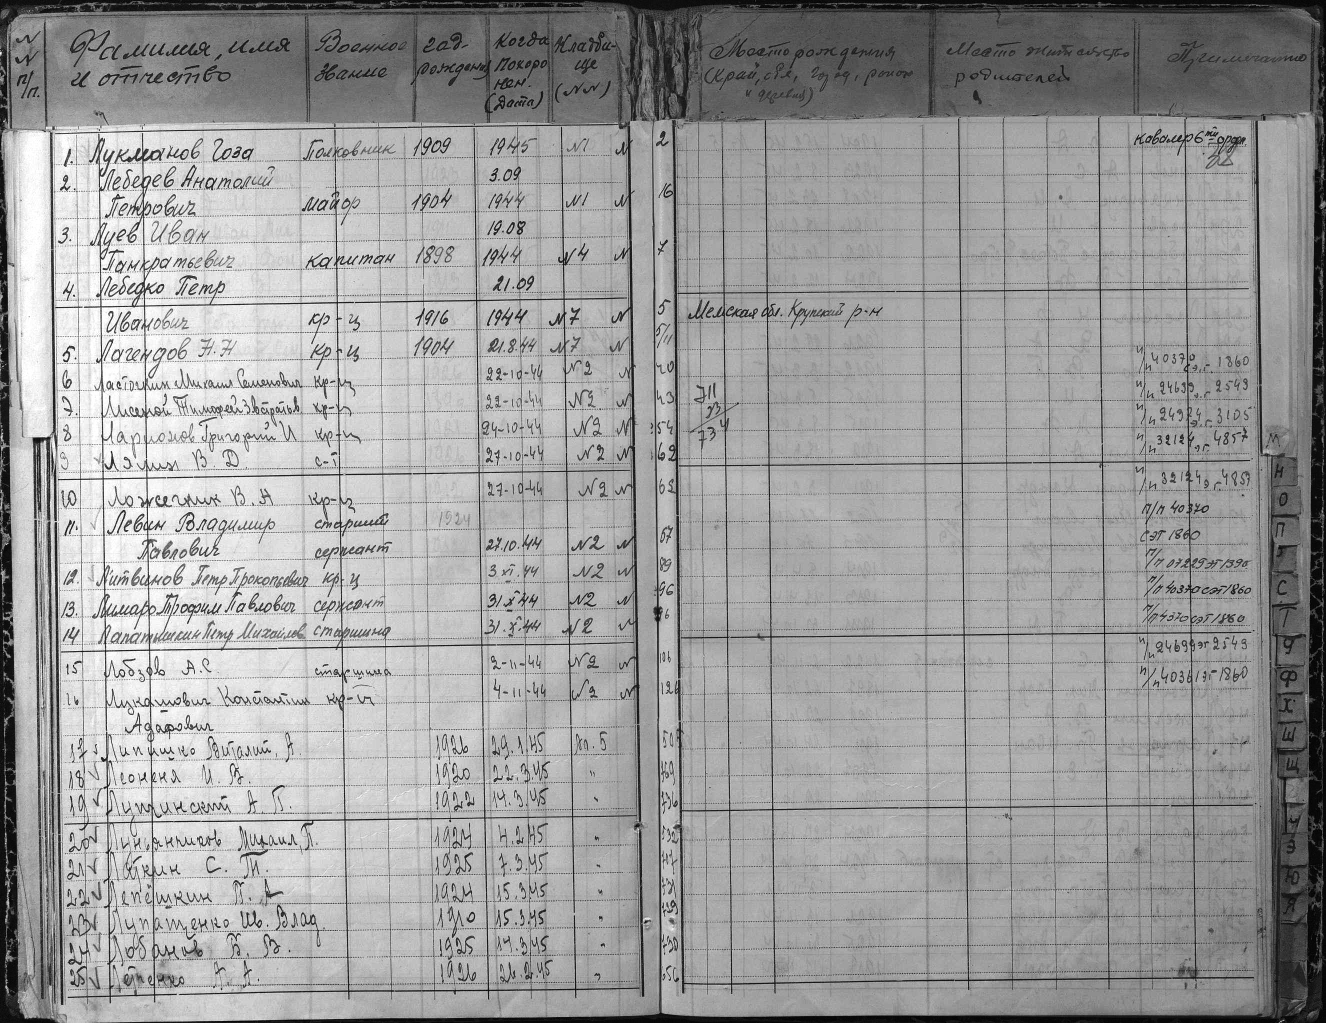 N N п/п. Фамилия, имя и отчество Военное звание год рождения Когда похоронен. (Дата) Кладбище (NN) Место рождения (Край, обл, город, район и деревня) Место жительство родителей Примечание
1. Лукманов Гоза Полковник 1909 1945 N1 N 2 кавалер 6ти орден.
2. Лебедев Анатолий 3.09
Петрович майор 1904 1944 N1 N 16
3. Луев Иван 19.08
Панкратьевич капитан 1898 1944 N4 N 7
4. Лебедко Петр 21.09
Иванович кр-ц 1916 1944 N7 N 5 обл. Крупский р-н
5. Лагендов Н.Н кр-ц 1904 21.8.44 N7 N 5/11
6 Ласточкин Михаил Семенович кр-ц 22-10-44 N2 N 40 п/п 40370 сэг. 1860
7. Лисеной Тимофей кр-ц 22-10-44 N2 N 43 711 п/п 24699 эг 2549
8 Ларионов Григорий И кр-ц 24-10-44 N2 N 54 734 п/п 24924 эг 3105
9 Лялин В. Д с-т 27-10-44 N2 N 62 п/п 32124 эг. 4857
10 Ложечник В. А кр-ц 27-10-44 N2 N 63 п/п 32124 эг. 4859
11. Левин Владимир старший 1924 П/П 40370
Павлович сержант 27.10.44 N2 N 67 СЭГ 1860
12. Литвинов Петр Прокопьевич кр-ц 3 XI 44 N2 N 89 П/П 07229 эг 1390
13. Лимаро Трофим Павлович сержант 31 X 44 N2 N 96 П/П 40370 сэг 1860
14 Лапатышкин Петр Михайлов. старшина 31. X 44 N2 N П/П 4370 сэг 1860
15 Лобзов А.С. старшина 2-11-44 N2 N 106 п/п 24699 эг 2549
16 Лукашович Константин кр-ц 4-11-44 N2 N 126 п/п 40361 эг 1860
Адафович
17 Липишко Виталий, А. 1926 29.1.45 Кл. 5
18 Леоненя И. В. 1920 22.3.45 "
19 Лущинский А П. 1922 14.3.45 "
20 Михаил, П. 1924 4.2.45 "
21 Ляткин С. Т. 1925 7.3.45 "
22 Лепёшкин П. А 1924 15.3.45 "
23 Лупащенко Ив. Влад. 1910 15.3.45 "
24 Лобанов Б. В. 1925 14.3.45 "
25 А. А. 1926 26.2.45 "
М
Н
О
П
С
Т
У
Ф
Х
Ш
Щ
Э
Ю
Я